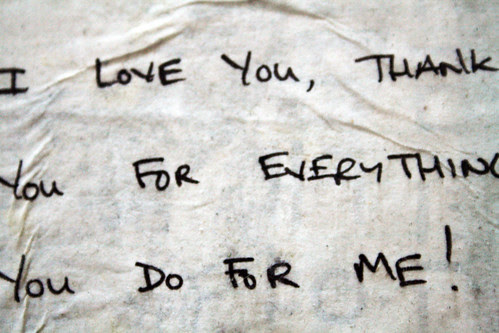 I LOVE YOU, THANK
YOU FOR EVERYTHING
YOU DO FOR ME!